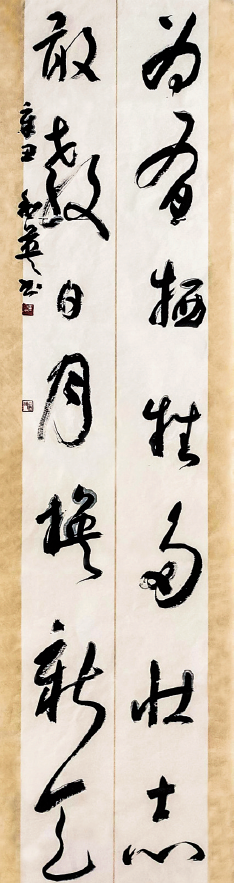 为有牺牲多壮志
敢教日月换新天
辛丑 和英书